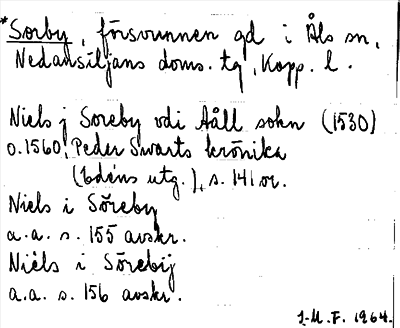 *Sörby, försvunnen gd i Åls sn,
Nedansiljans doms. tg, Kopp. l.
Niels j Soreby vdi Aåll sokn (1530)
o.1560, Peder Swarts krönika
(Edéns utg.), s. 141 or.
Niels i Söreby
a.a. s. 155 avskr.
Niels i Sörebij
a.a. s. 156 avskr.
J.M.F. 1964.